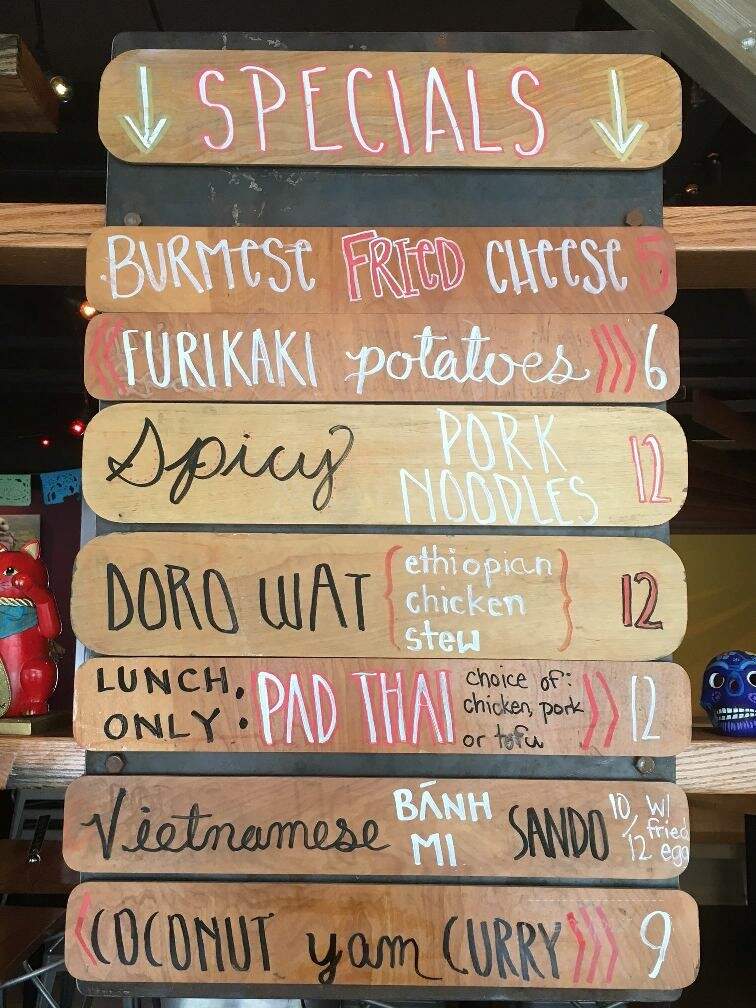 SPECIALS
BURMESE FRIED CHEESE 5
FURIKAKI potatoes 6
Spicy PORK NOODLES 12
DORO WAT {ethiopian chicken stew} 12
LUNCH ONLY: PAD THAI choice of: chicken, pork or tofu 12
Vietnamese BÁNH MI SANDO 10/12 w/ fried egg
COCONUT yam CURRY 9